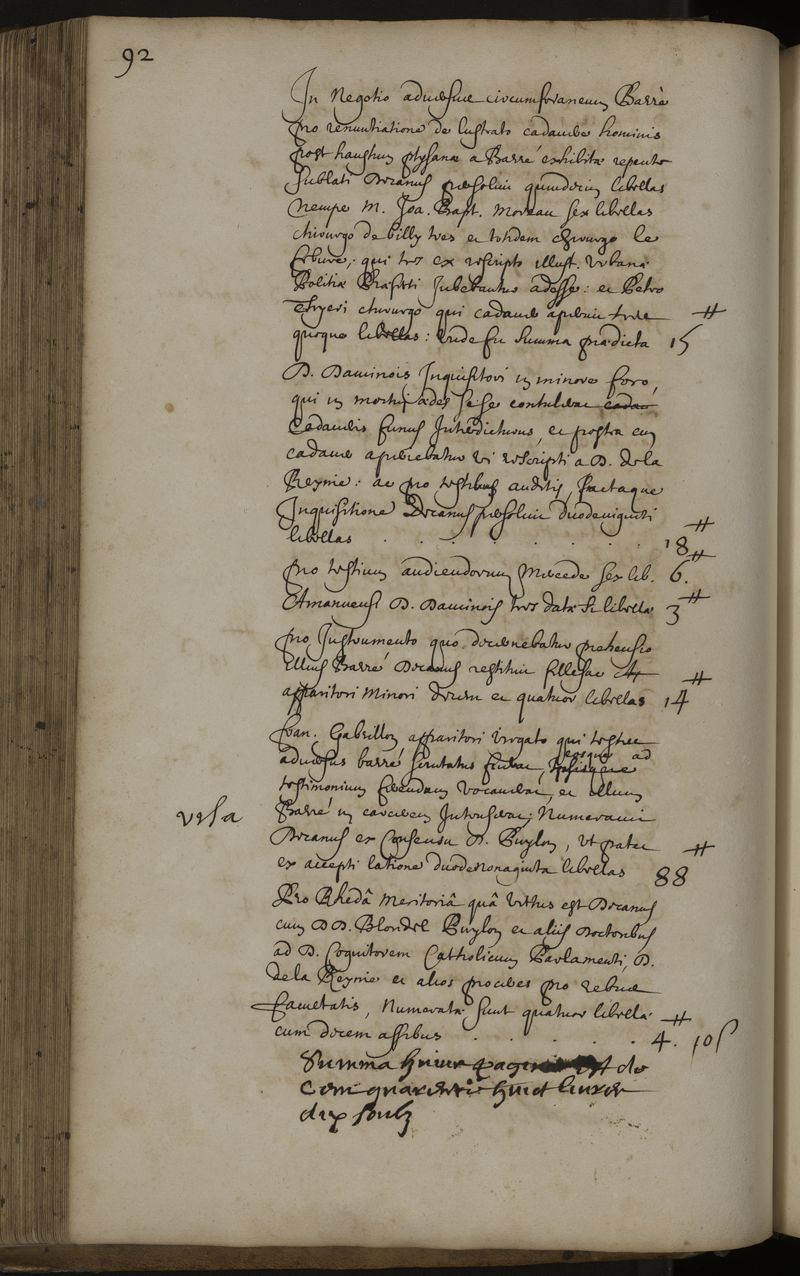 92
In Negotio adversus circumforaneum Barré
pro renuntiatione de lustrato cadavere hominis
post haustum ptysanæ a Barré exhibitæ repente
sublati Decanus persolvit quindecim libellas
Nempe M. Joa. Bapt. Moreau sex libellas
chirurgo de billy tres et totidem chirurgo le
febvre; qui tres ex rescripto illust. Urbanæ
Politiæ Præfecti Jubebantur adesse: et Petro
chirurgo qui cadaver aperuit tres
quoque libellas: unde fit summa prædicta 15 ₶
D. Daminois Inquisitori in minore foro,
qui in mortui ædes sese contulerat cadav
Cadaveris funus Interdicturus, et postea cum
cadaver aperiebatur vi rescripti a D. de la
Reynie: ac pro testibus auditis, factaque
Inquisitione Decanus persolvit duodeviginti
libellas . . . . . . . 18 ₶
pro testium audiendorum Mercede sex lib. 6. ₶
Amanuensi D. Daminois tres datæ st libellæ 3 ₶
pro Instrumento quo decernebatur prehensio
illius Barré Decanus restituit
apparitori Minori decem et quatuor libellas 14 ₶
Joan. Gabrillon apparitori virgato qui testes
adversus barré scrutatus fuerat, eosque ad
testimonium ferendum vocaverat, et illum
visa
Barré in carcerem Intruserat; Numeravit
Decanus ex Consensu D. Puylon, ut patet
ex accepti latione duodenonaginta libellas 88 ₶
Pro Rhedâ Meritoriâ quâ vectus est Decanus
cum DD. Blondel Puylon et aliis Doctoribus
ad D. Cognitorem Catholicum Parlamenti, D.
de la Reynie et alios proceres pro rebus
facultatis, Numeratæ sunt quatuor libellæ
cum decem assibus . . . . . 4. ₶ 10 s
Summa huius paginæ est de
Cent quarente huict livres
dix soulz